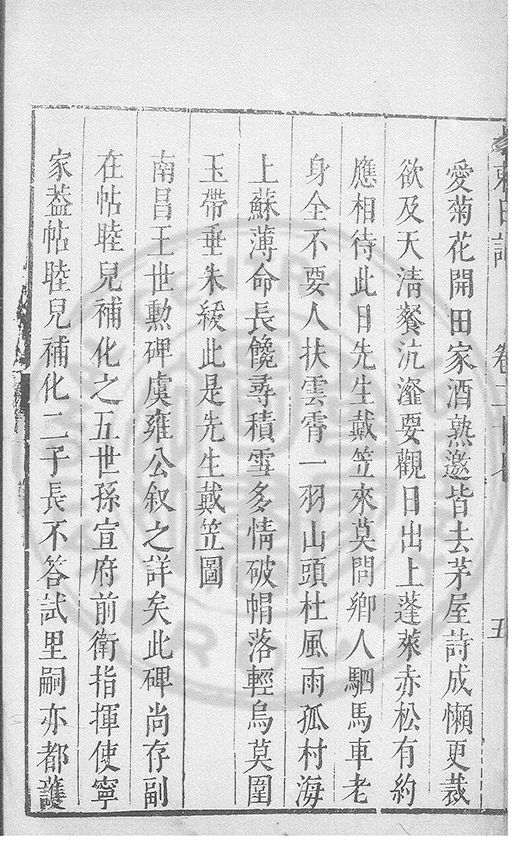 愛菊花開田家酒熟邀皆去茅屋詩成懶更裁
欲及天清餐沆瀣要觀日出上蓬萊赤松有約
應相待此日先生戴笠來莫問鄉人駟馬車老
身全不要人扶雲霄一羽山頭杜風雨孤村海
上蘇薄命長饞尋積雪多情破帽落輕烏莫圍
玉帶垂朱緩此是先生戴笠圖
南昌王世勲碑虞雍公叙之詳矣此碑尚存副
在帖睦兒補化之五世孫宣府前衛指揮使寧
家葢帖睦兒補化二子長不答試里嗣亦都護